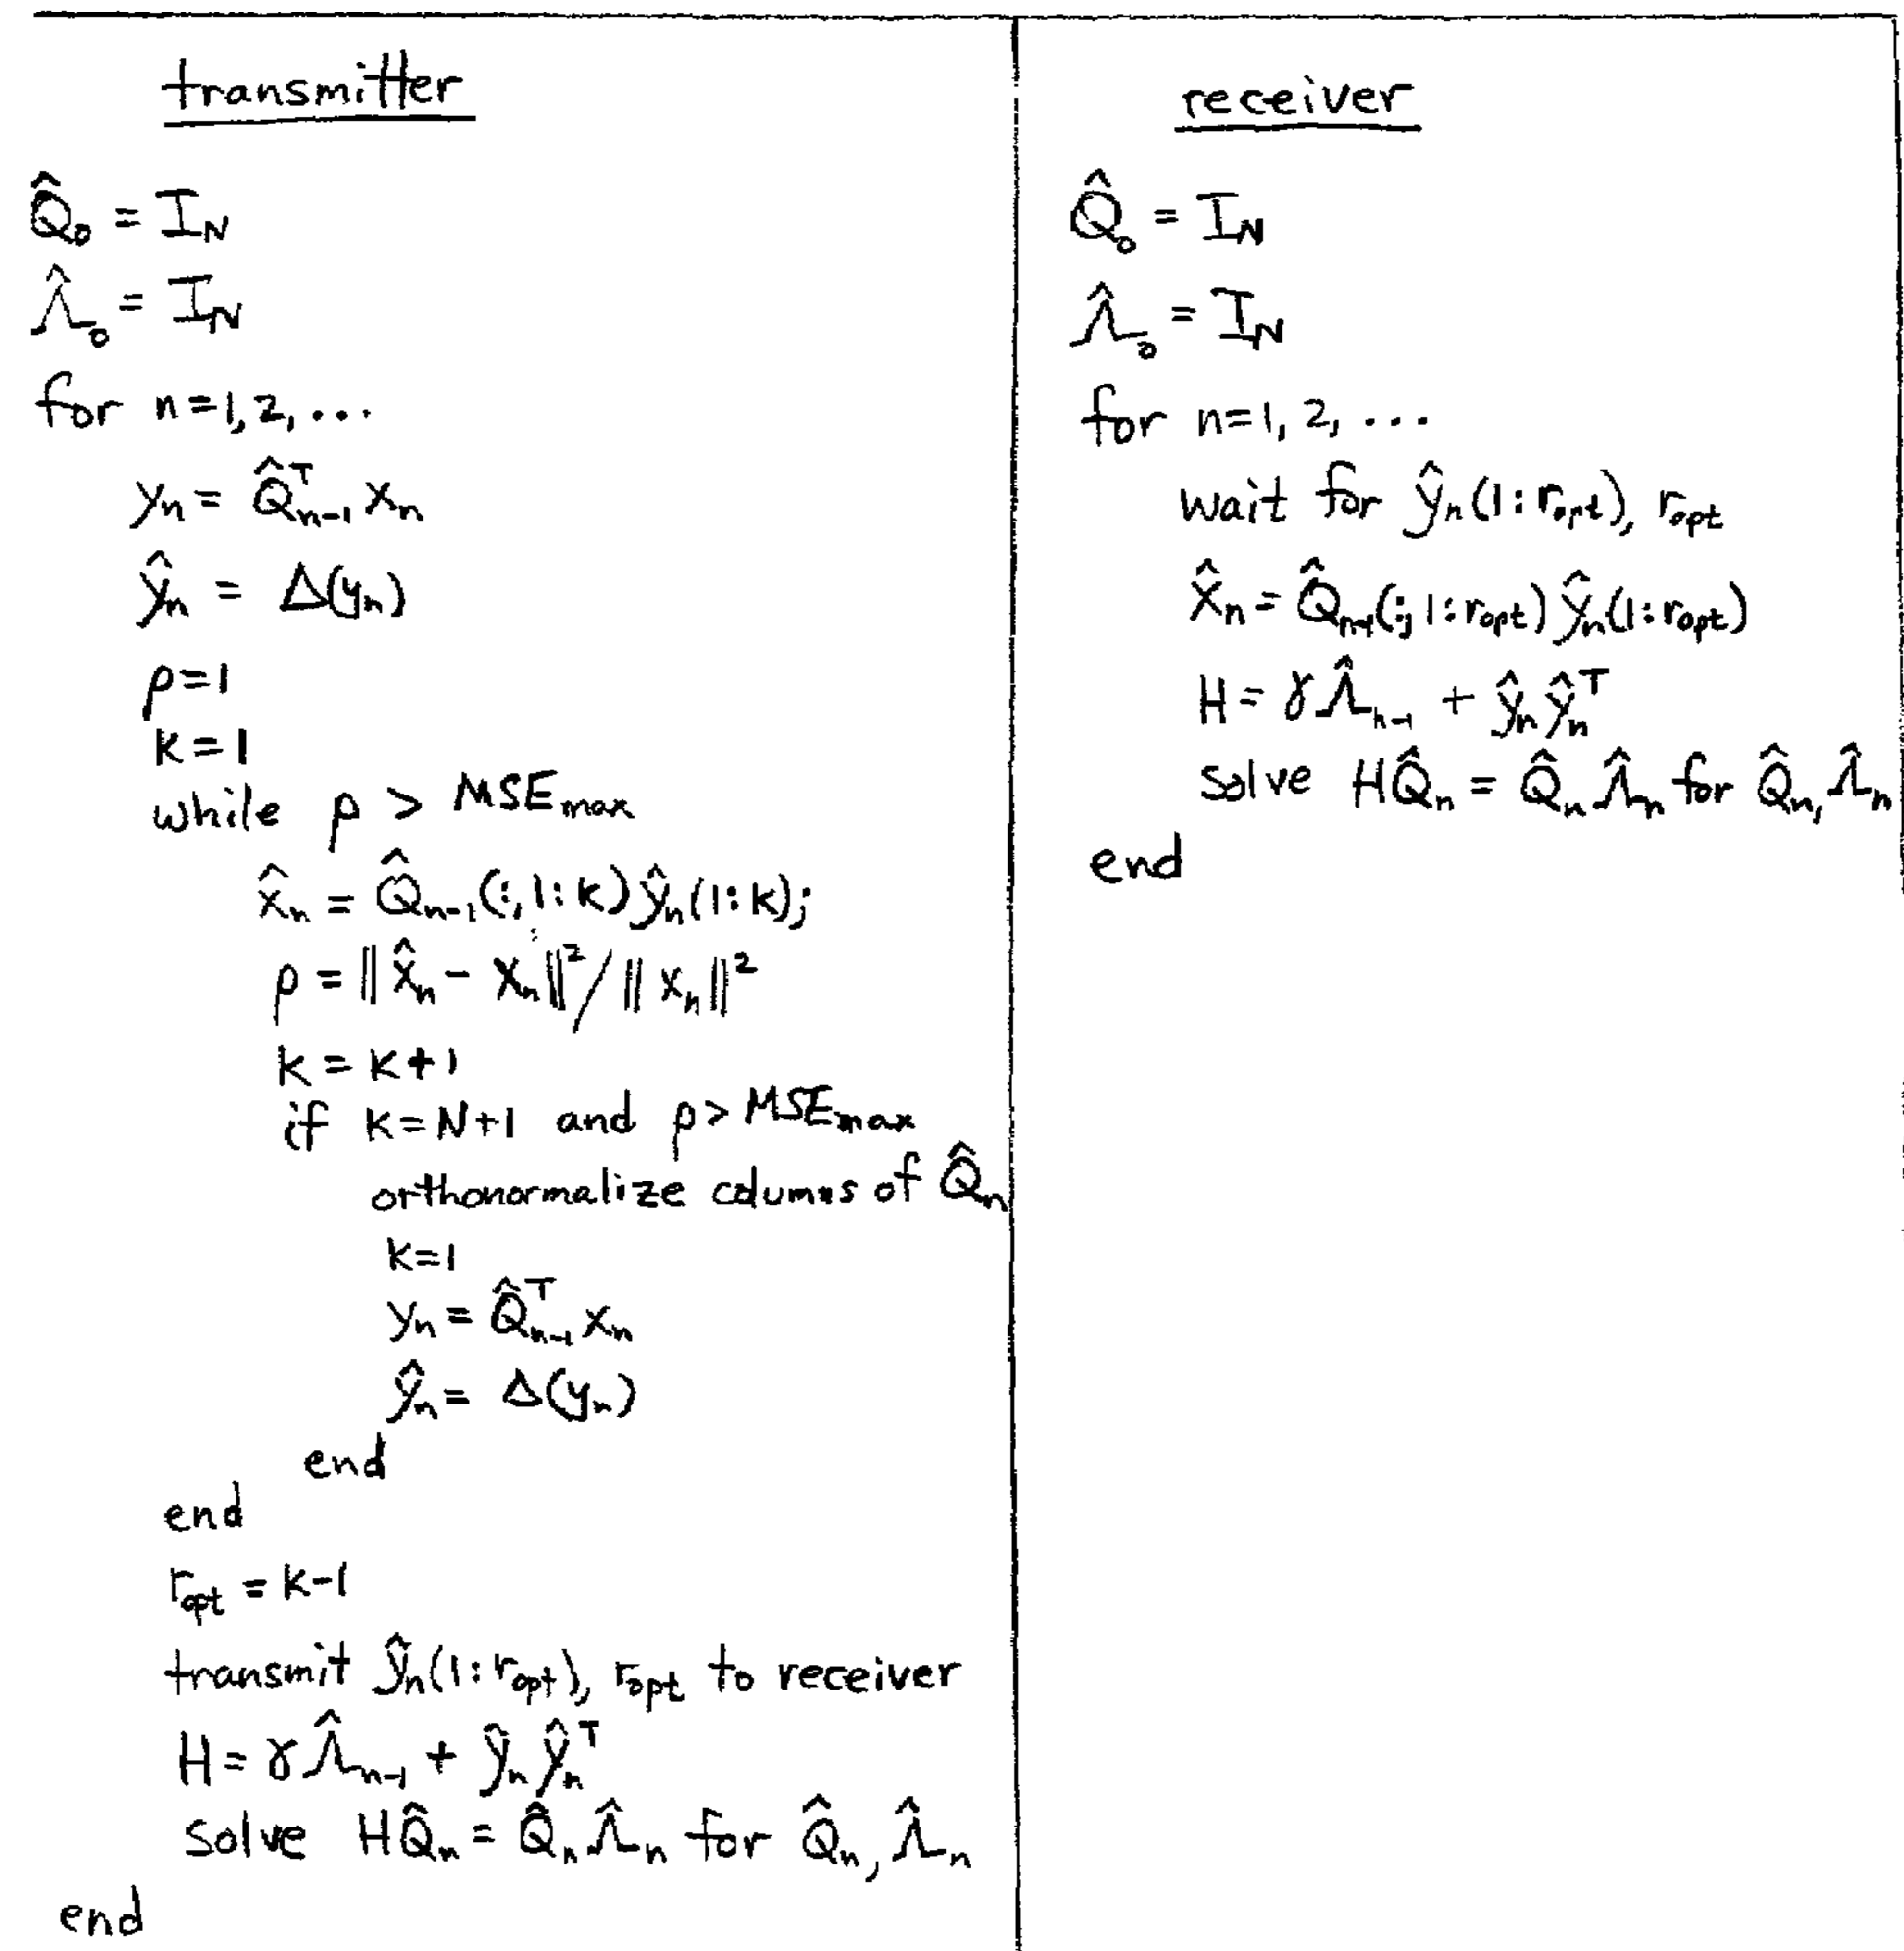 transmitter
Q̂₀ = I_N
Λ̂₀ = I_N
for n=1,2,...
yₙ = Q̂ᵀₙ₋₁ xₙ
ŷₙ = Δ(yₙ)
ρ=1
k=1
while ρ > MSE_max
x̂ₙ = Q̂ₙ₋₁(:,1:k) ŷₙ(1:k);
ρ = ||x̂ₙ - xₙ||²/||xₙ||²
k = k+1
if k=N+1 and ρ> MSE_max
orthonormalize columns of Q̂ₙ
k=1
yₙ = Q̂ᵀₙ₋₁ xₙ
ŷₙ = Δ(yₙ)
end
end
r_opt = k-1
transmit ŷₙ(1:r_opt), r_opt to receiver
H = γΛ̂ₙ₋₁ + ŷₙŷₙᵀ
Solve HQ̂ₙ = Q̂ₙΛ̂ₙ for Q̂ₙ, Λ̂ₙ
end
receiver
Q̂₀ = I_N
Λ̂₀ = I_N
for n=1, 2, ...
wait for ŷₙ(1:r_opt), r_opt
x̂ₙ = Q̂ₙ₋₁(:,1:r_opt) ŷₙ(1:r_opt)
H = γΛ̂ₙ₋₁ + ŷₙŷₙᵀ
Solve HQ̂ₙ = Q̂ₙΛ̂ₙ for Q̂ₙ, Λ̂ₙ
end